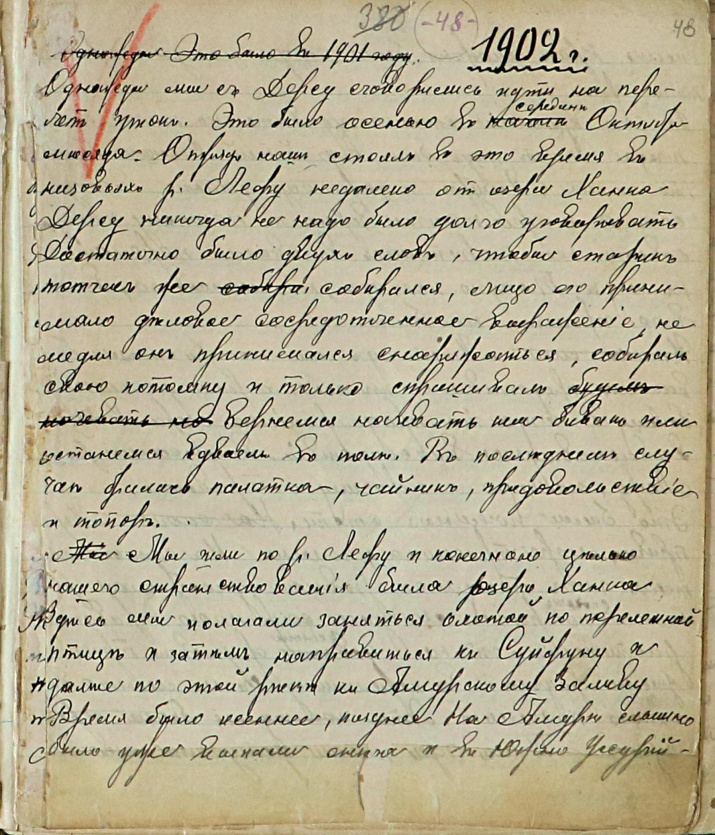 380 -48- 48
Однажды Это было въ 1901 году. 1902 г.
Однажды мы съ Дерсу сговорились идти на пере-
летъ утокъ. Это было осенью въ начале середине Октябр
месяца. Отрядъ нашъ стоялъ въ это время въ
низовьяхъ р. Лефу недалеко отъ озера Ханка
Дерсу никогда не надо было долго уговаривать
Достаточно было двухъ словъ, чтобы старикъ
тотчасъ же собира собирался, лицо его прини-
мало деловое сосредоточенное выраженіе, не
медля онъ принимался снаряжаться, собиралъ
свою котомку и только спрашивалъ будемъ
ночевать на вернемся ночевать на бивакъ или
останемся вдвоемъ въ поле. Въ последнемъ слу-
чае брались палатка, чайникъ, продовольствіе
и топоръ.
Мы шли по р. Лефу и конечною целью
нашего странствованія было озеро Ханка
Здесь мы полагали заняться охотой по перелетной
птице и затемъ направиться къ Суйфуну и
далее по этой реке къ Амурскому Заливу
Время было осеннее, позднее На Амуре
было уже въ Южно Уссурій-